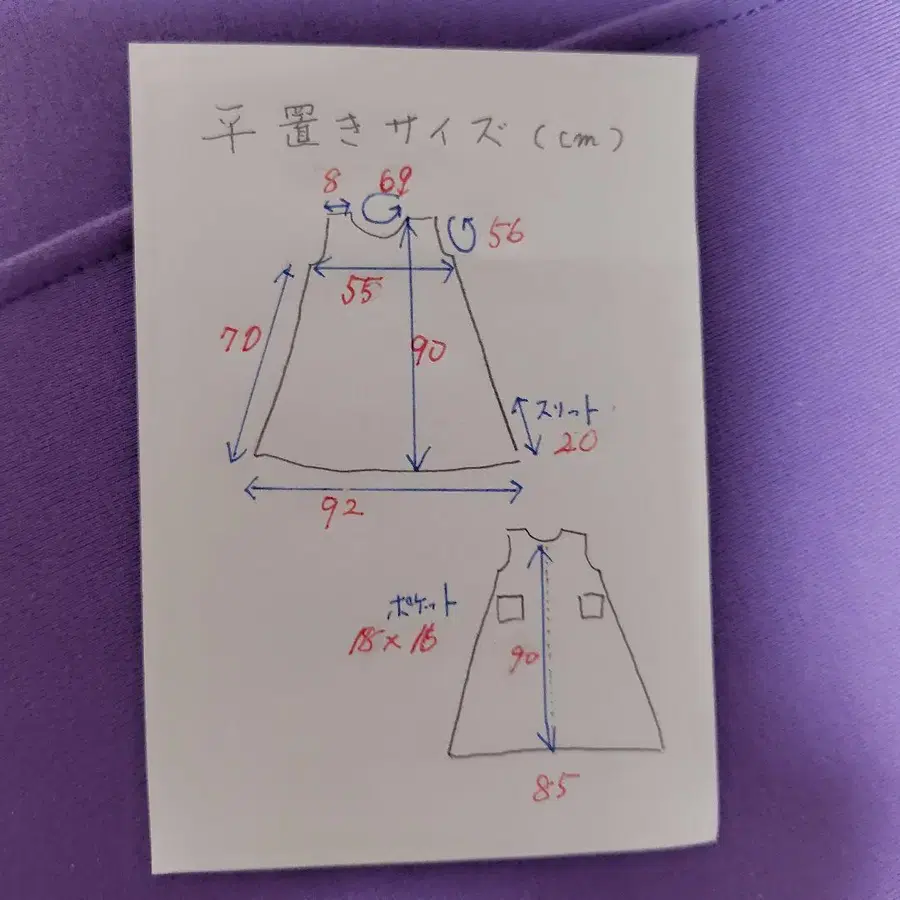 平置きサイズ(cm)
8
69
56
55
70
90
スリット
20
92
ポケット
90
85